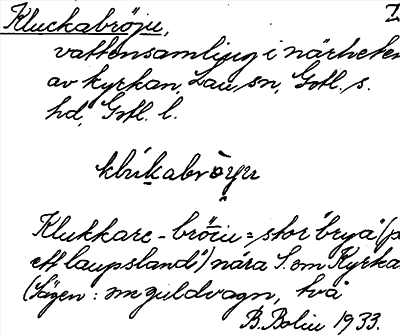 Kluckabröju,
vattensamling i närheten
av kyrkan, Lau sn, Gotl. s.
hd, Gotl. l.
Klukkare-bröiu = stor "brya" (p
ett laupsland") nära S. om Kyrka
(Sägen: m guldvagn, två
B. Bolin 1933.